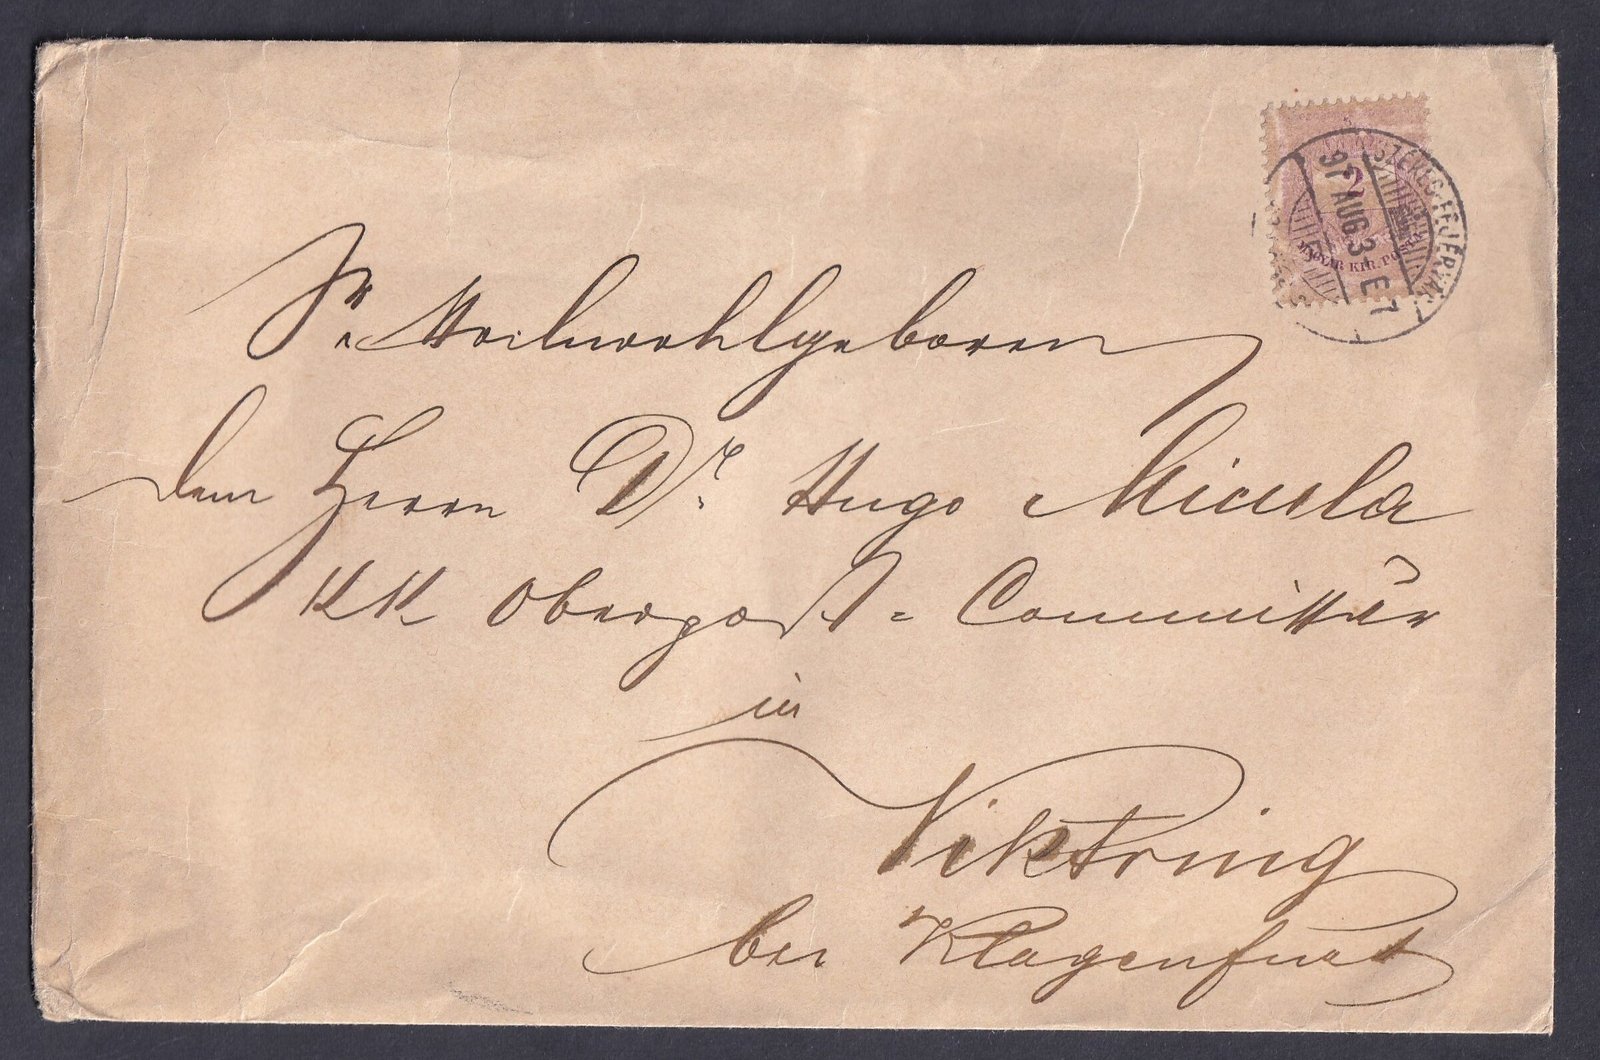 SZÉKES-FEJÉRVÁR
97 AUG 3 E7
2
MAGYAR KIR. POSTA
Sr Hochwohlgeboren
dem Herrn Dr. Hugo Micula
KK Oberpost-Commissär
in
Viktring
bei Klagenfurt